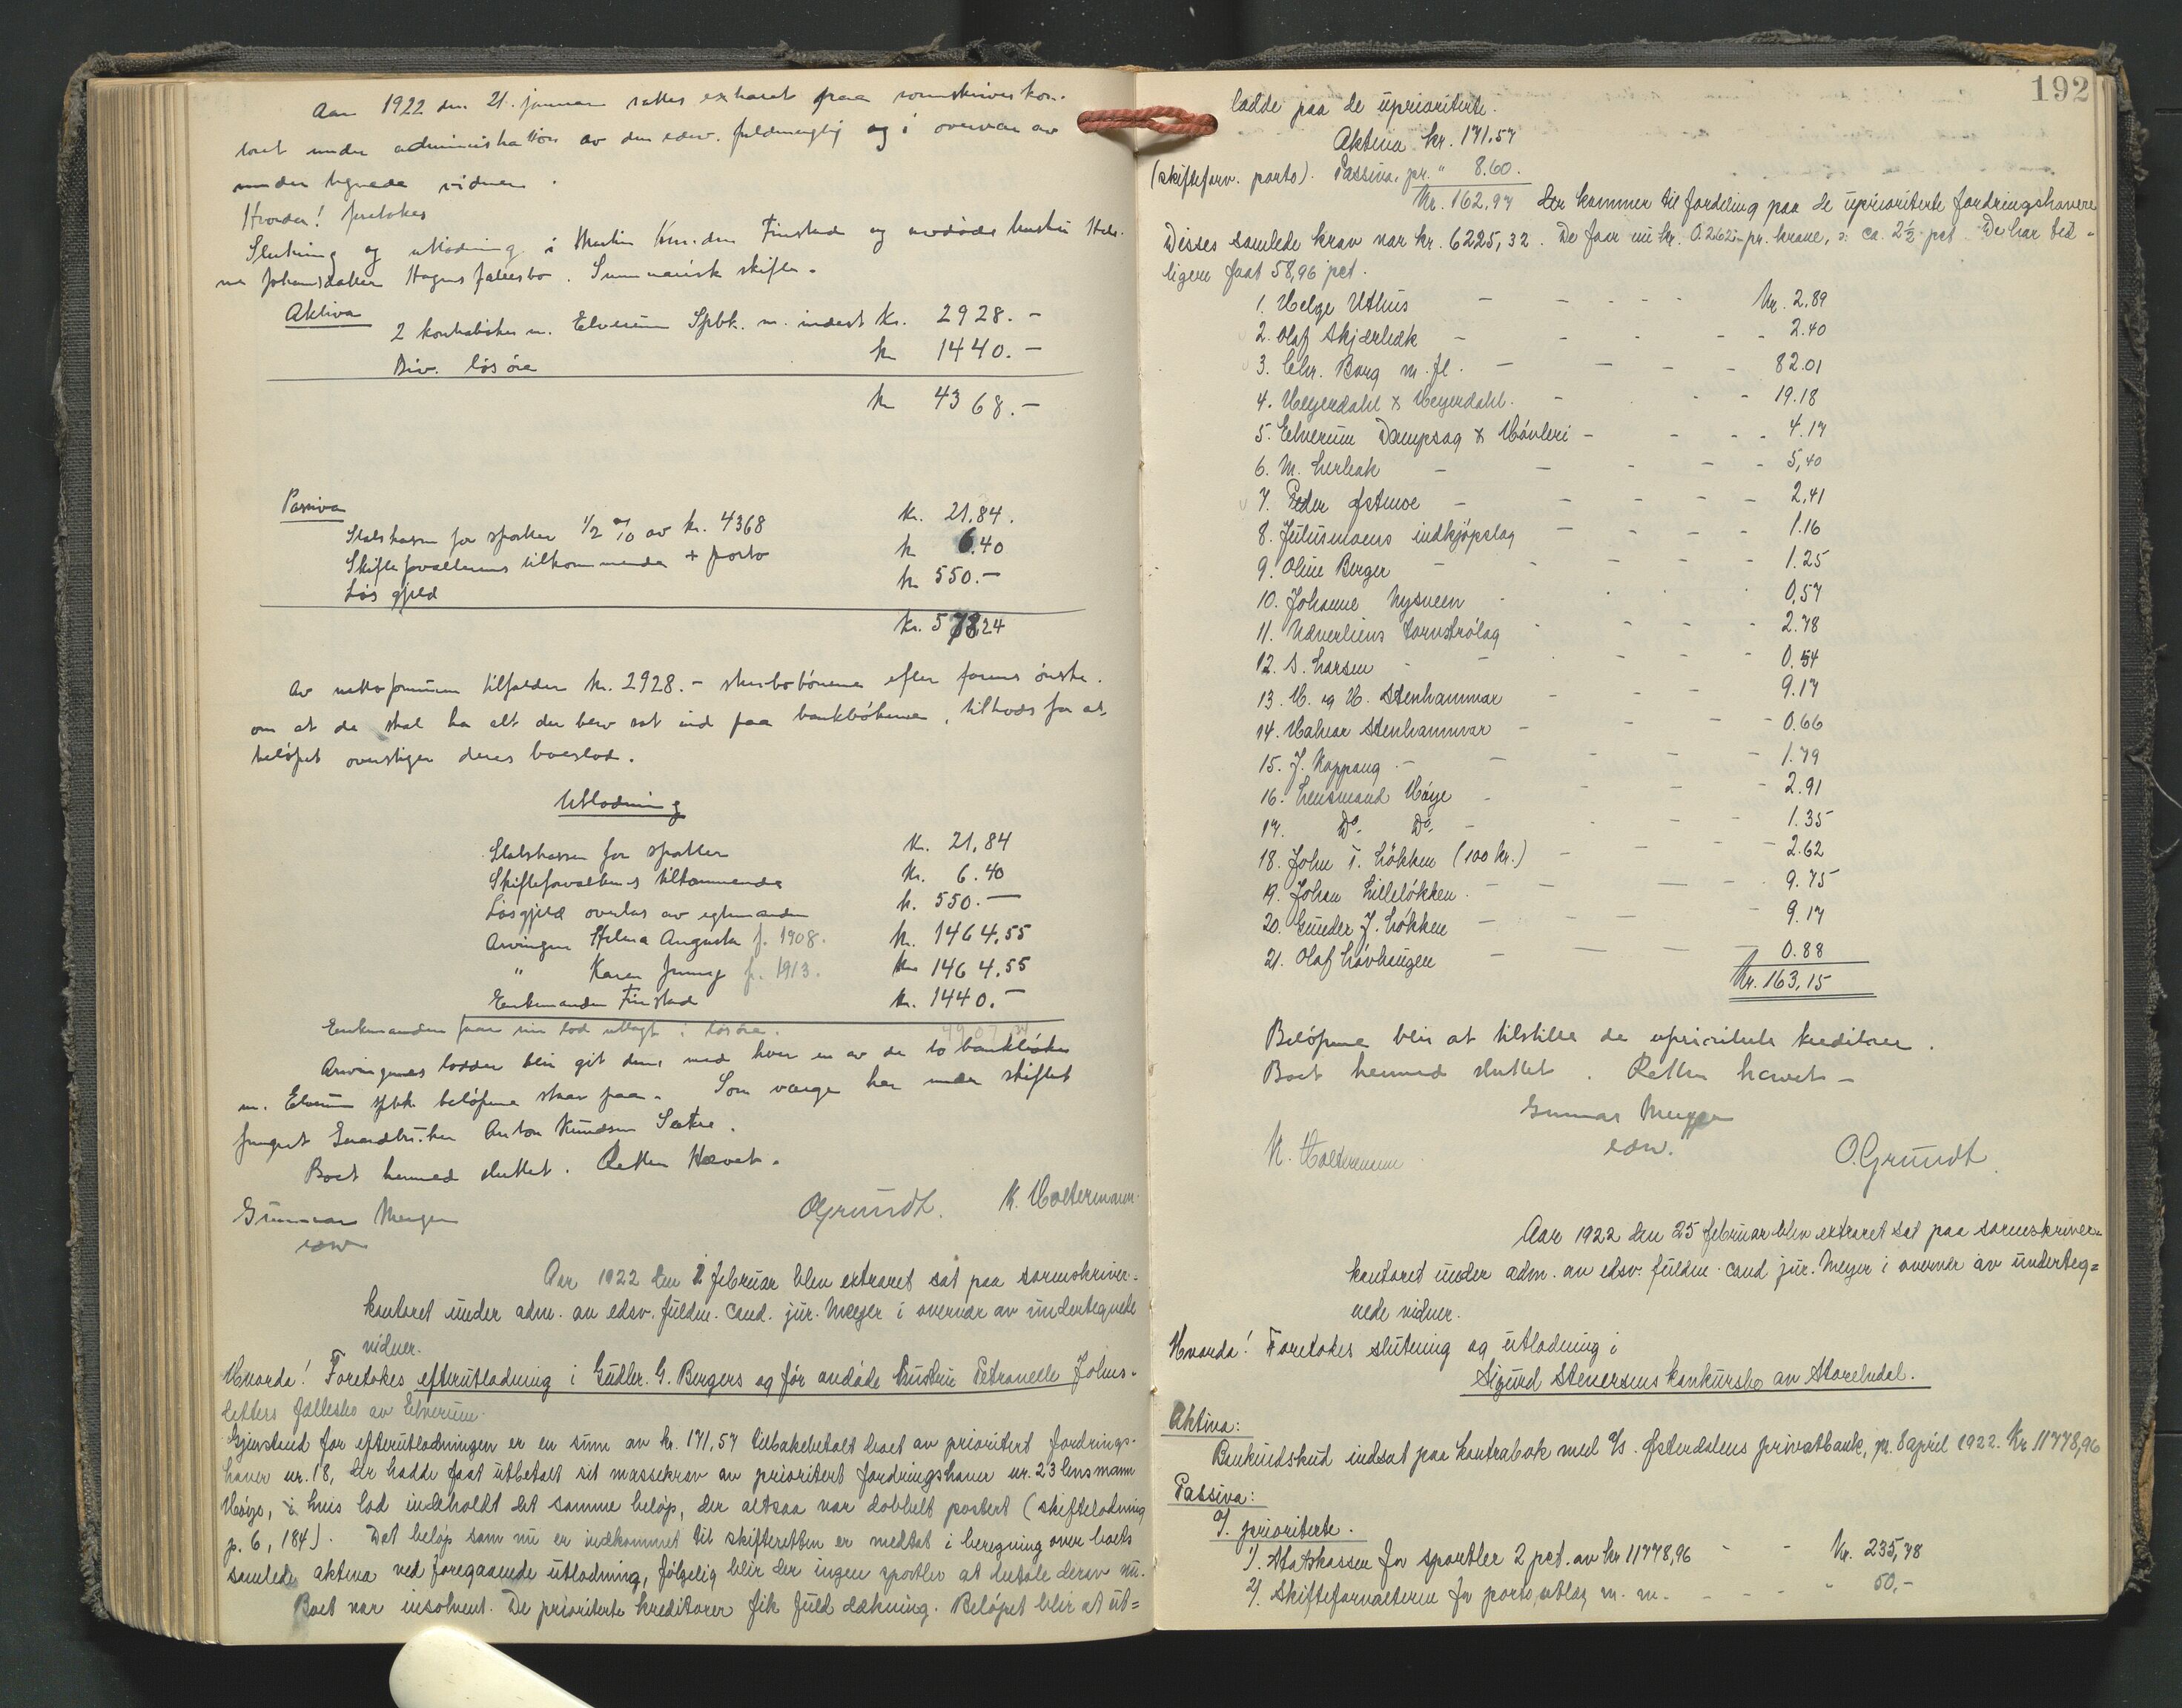 Aar 1922 den 21. januar sattes extraret paa sorenskriverkon-
toret under administration av den edsv. fuldmægtig og i overvær av
undertegnede vidner.
Hvorda! foretokes
Slutning og utlodning i Martin Finstad og avdøde hustru
Johansdatter Hagens fællesbo. Summarisk skifte.
Aktiva
2 kontrabøker m. Elverum Spbk. m. indest. Kr. 2928.-
Div. løsøre kr 1440.-
kr 4368.-
Passiva
Statskassen for sportler 1/2 % av kr. 4368 kr. 21,84.
Skifteforvalterens tilkommende + porto kr 6.40
Løs gjeld kr 550.-
Kr. 578,24
Av nettoformuen tilfalder kr. 2928.- sterbobörnene efter farens önske.
om at de skal ha alt der blev sat ind paa bankbökerne, tiltrods for at
belöpet overstiger deres boeslod.
Utlodning
Statskassen for sportler Kr. 21,84
Skifteforvalterens tilkommende Kr. 6.40
Løsgjeld overlas av egtemanden kr. 550.-
Arvingen Helma Augusta f. 1908. Kr. 1464,55
" Karen Jenny f. 1913. Kr 1464,55
Enkemanden Finstad kr. 1440.-
Enkemanden faar sin lod utlagt i løsøre. 4907 34
Arvingenes lodder blir git dem med hver en av de to bankbøker
m. Elverum spbk. beløpene staar paa. Som verge har under skiftet
fungert Gaardbruker Anton Knudsen Sætre.
Boet hermed sluttet. Retten Hævet.
Gunnar Meyer OGrundt. K. Holtermann.
edsv
Aar 1922 den 2 februar blev extraret sat paa sorenskriver-
kontoret under adm. av edsv. fuldm. cand. jur. Meyer i overvær av undertegnede
vidner.
Hvorda! Foretokes efterutlodning i Gudbr. G. Bergers og før avdøde hustru Petronelle Johns-
datters fællesbo av Elverum.
Gjenstand for efterutlodningen er en sum av kr. 171,57 tilbakebetalt boet av prioritert fordrings-
haver nr. 18, der hadde faat utbetalt sit massekrav av prioritert fordringshaver nr. 23 lensmann
Høye, i hvis lod indeholdt det samme beløp, der altsaa var dobbelt postert (skifteutlodning
p. 6, 184). Det beløp som nu er indkommet til skifteretten er medtat i beregning over boets
samlede aktiva ved foregaaende utlodning, følgelig blir der ingen sportler at betale derav nu.
Boet var insolvent. De prioriterte kreditorer fik fuld dækning. Beløpet blir at ut=
192
lodde paa de uprioriterte.
Aktiva kr. 171.57
(skifteforv. porto). Passiva, pr. " 8.60.
Kr. 162,97 der kommer til fordeling paa de uprioriterte fordringshavere
Disses samlede krav var kr. 6225,32. De faar nu kr. 0.262 pr. krone, ɔ: ca. 2½ pct. De har tid-
ligere faat 58,96 pct.
1. Helge Uthus Kr. 2.89
2. Olaf Skjærbæk 2.40
3. Chr. Borg m. fl. 82.01
4. Heyerdahl & Heyerdahl. 19.18
5. Elverum Dampsag & Høvleri 4.17
6. M. Lerbak 5,40
7. Peder Østmoe 2,41
8. Julusmoens indkjøpslag 1.16
9. Oline Berger 1.25
10. Johanne Nysveen 0,57
11. Næverliens tornströlag 2.78
12. S. Larsen 0.54
13. H. og H. Stenhammar 9.17
14. Halvar Stenhammar 0.66
15. J. Koppang 1.79
16. Lensmand Høye 2.91
17. Do. Do. 1.35
18. John T. Løkken (100 kr.) 2.62
19. Johan Lilleløkken. 9.75
20. Gunder J. Løkken 9.17
21. Olaf Løvhaugen 0.88
Kr. 163,15
Belöpene blir at tilstille de uprioriterte kreditorer.
Boet hermed sluttet. Retten hævet -
Gunnar Meyer
edsv.
K. Holtermann O.Grundt.
Aar 1922 den 25 februar blev extraret sat paa sorenskriver-
kontoret under adm. av edsv. fuldm. cand jur. Meyer i overvær av underteg=
nede vidner.
Hvorda! Foretokes slutning og utlodning i
Sigurd Stenersens konkursbo av Storelvdal.
Aktiva:
Bankindskud indsat paa kontrabok med A/s. Østerdalens privatbank, pr. 8 april 1922. Kr. 11778,96
Passiva:
a/. prioriterte.
1/. Statskassen for sportler 2 pct. av kr 11778,96 Kr. 235,78
2/. Skifteforvalteren for porto, utlæg m. m. " 50,-